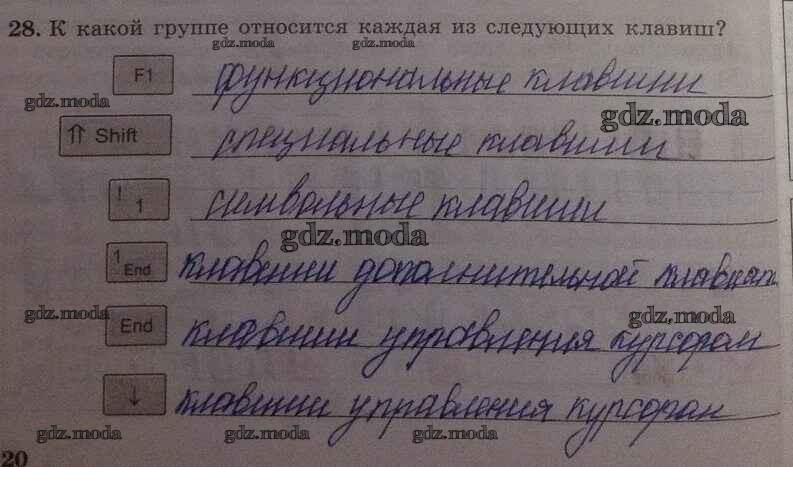 28. К какой группе относится каждая из следующих клавиш?
gdz.moda gdz.moda
F1 функциональные клавиши
gdz.moda gdz.moda
⇑ Shift специальные клавиши
! 1 символьные клавиши
gdz.moda
1 End клавиши дополнительной клавиат.
gdz.moda gdz.moda
End клавиши управления курсором
↓ клавиши управления курсором
gdz.moda gdz.moda gdz.moda
20